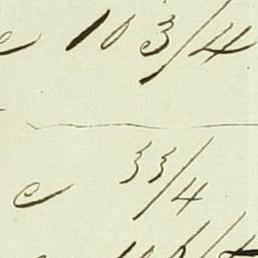 e 10 3/4
e 33/4